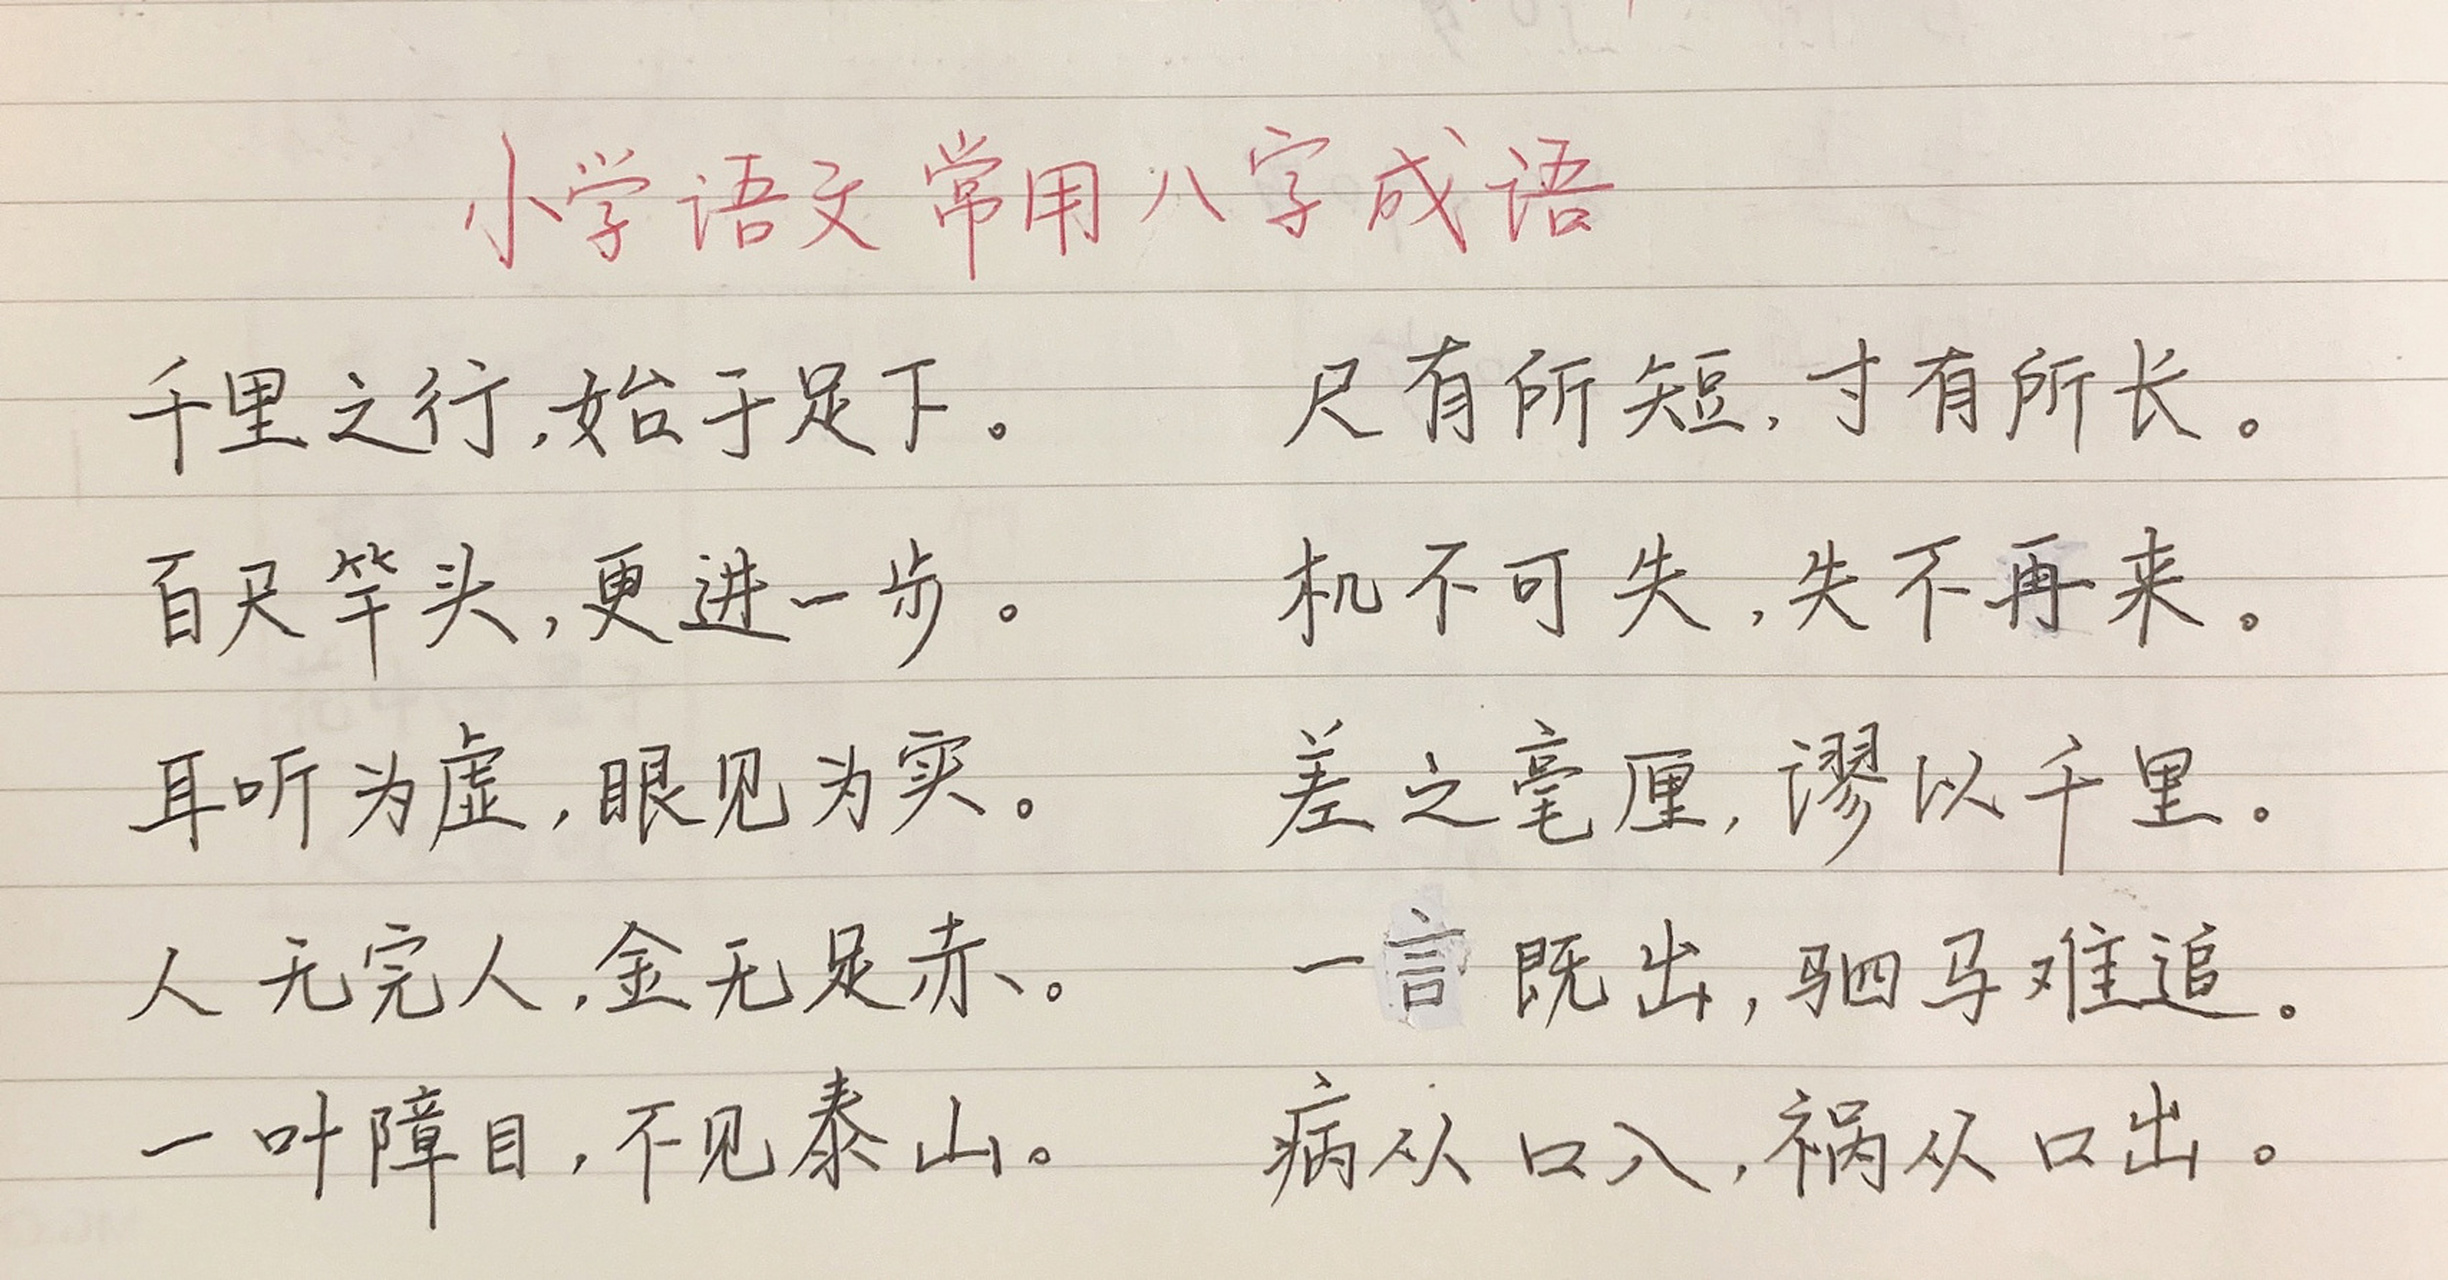 小学语文常用八字成语
千里之行,始于足下。 尺有所短,寸有所长。
百尺竿头,更进一步。 机不可失,失不再来。
耳听为虚,眼见为实。 差之毫厘,谬以千里。
人无完人,金无足赤。 一言既出,驷马难追。
一叶障目,不见泰山。 病从口入,祸从口出。